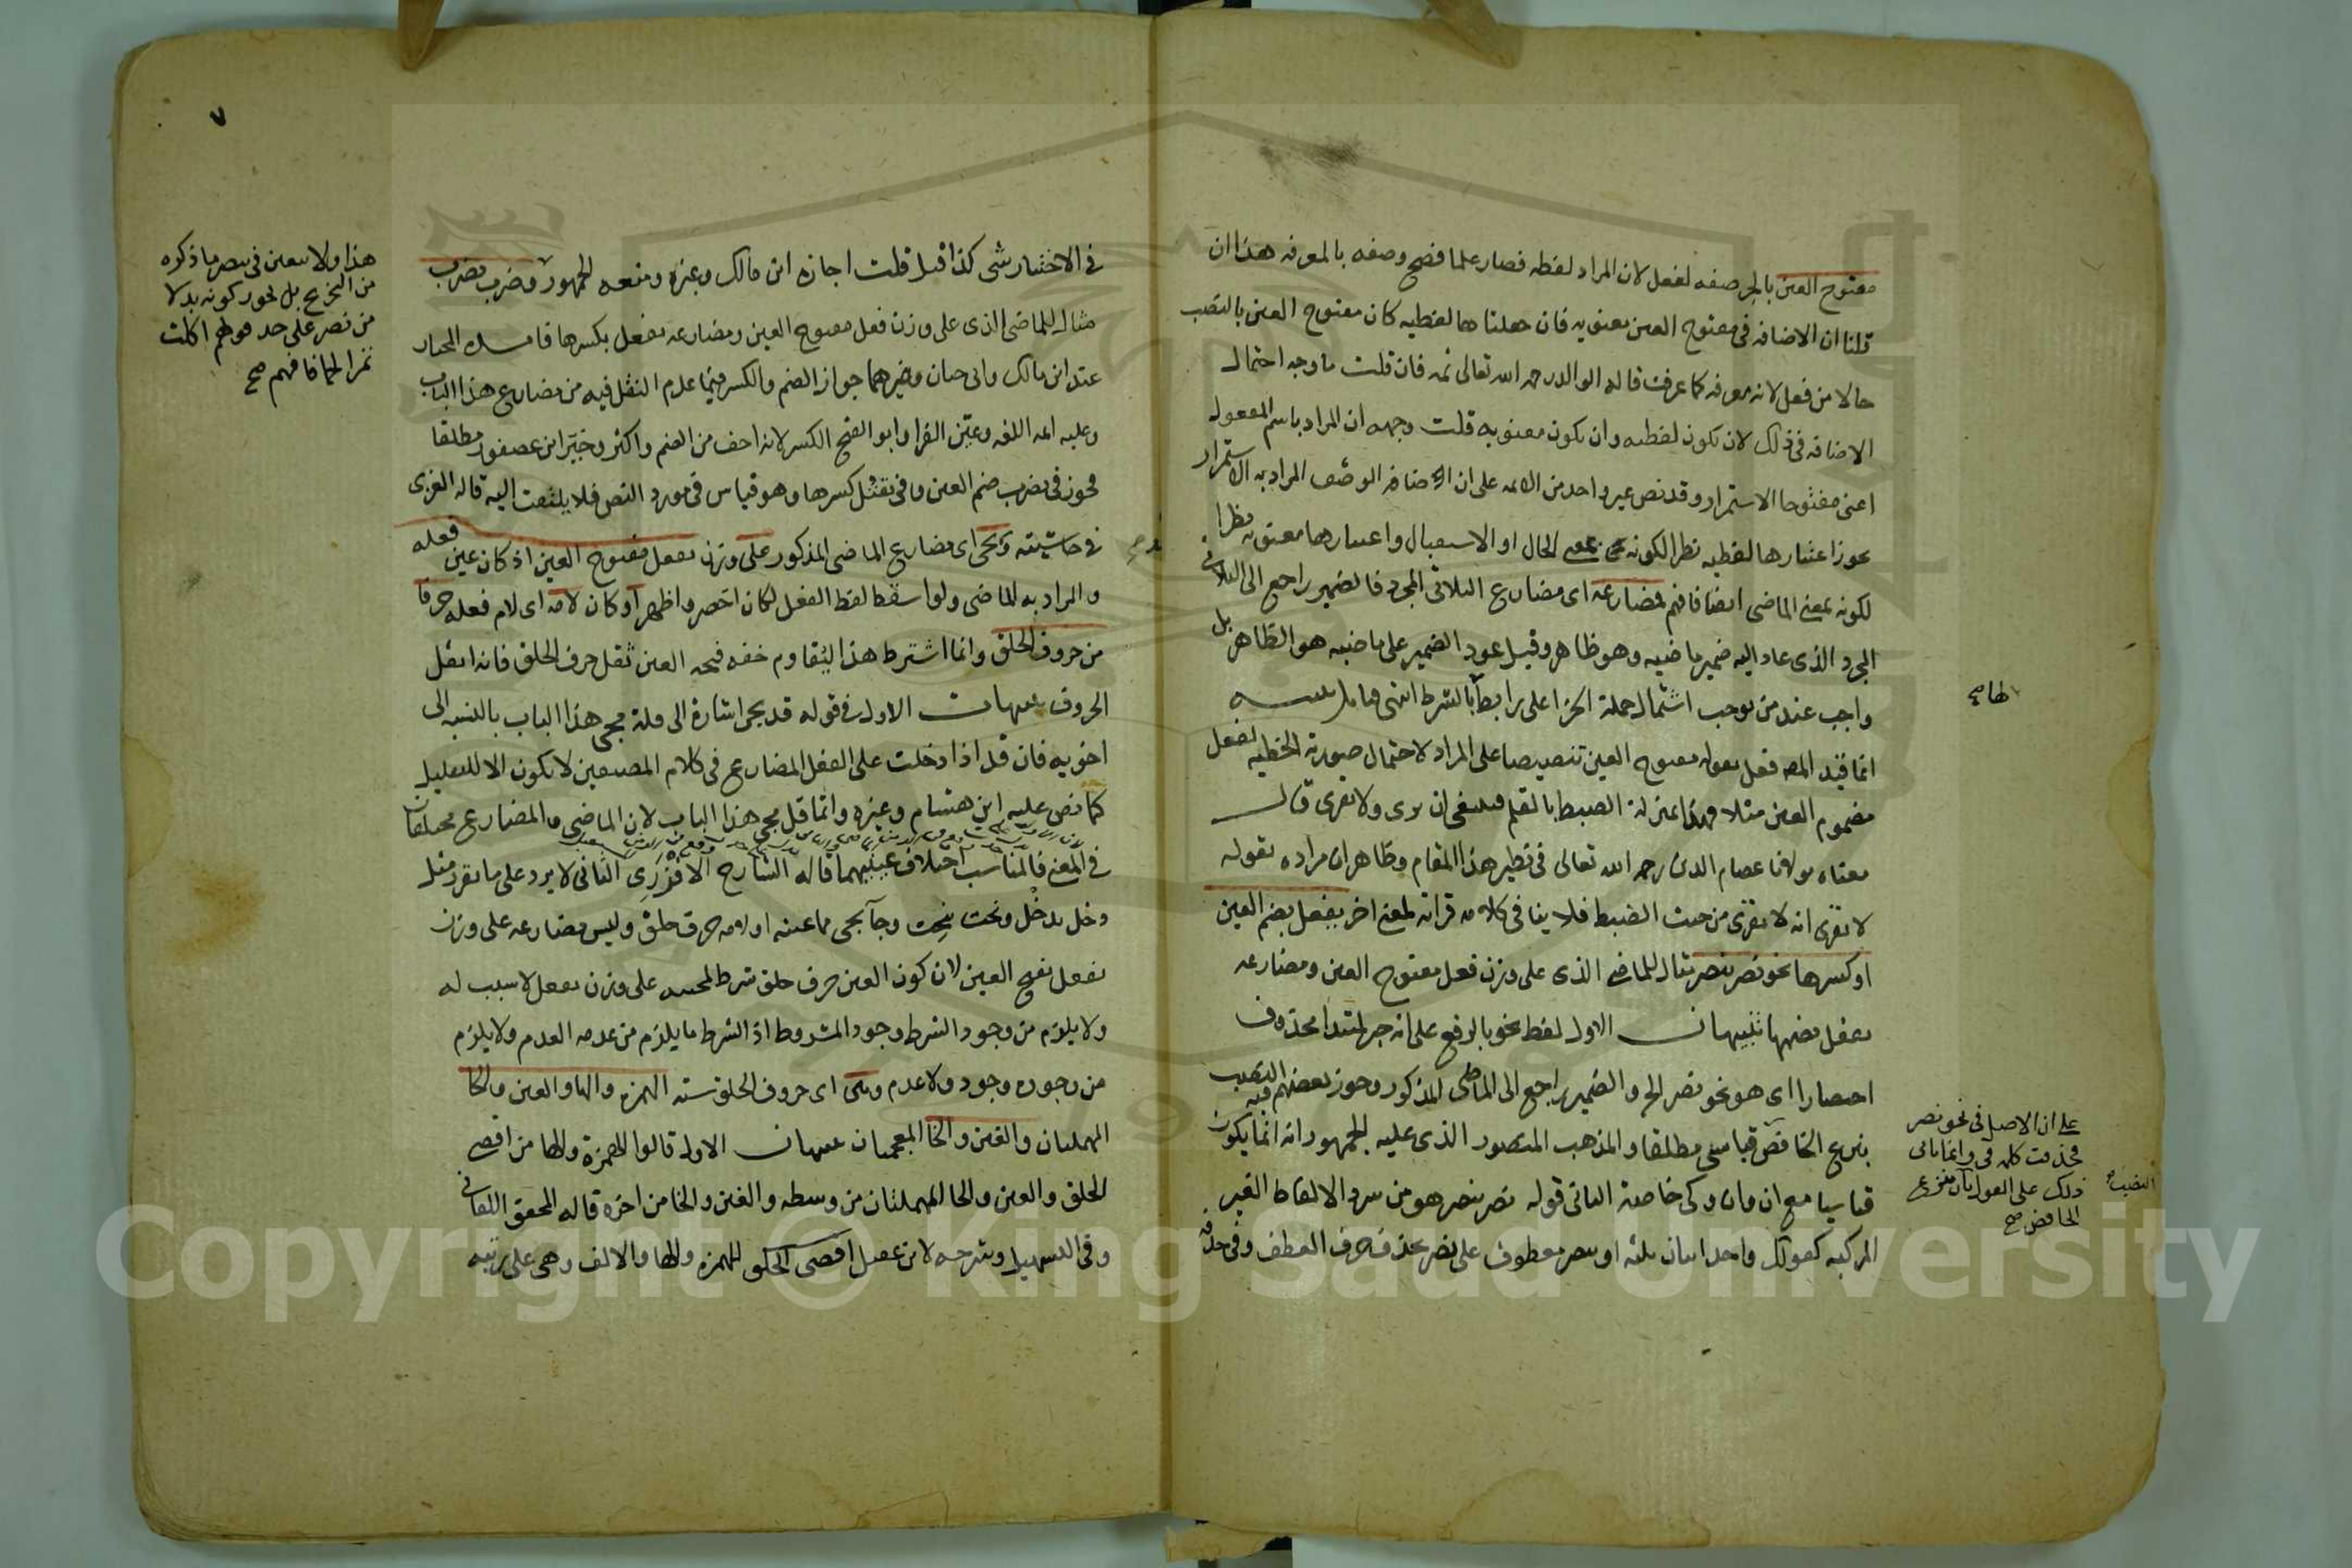 مفتوح العين بالجر صفه لفعل لان المراد لفظه فصار علما فصح وصفه بالمعرفه هذا ان
قلنا ان الاضافه في مفتوح العين معنويه فان جعلناها لفظيه كان مفتوح العين بالنصب
حالا من فعل لانه معرفه كما عرفت قاله الوالد رحمه الله تعالى ثمه فان قلت ما وجه احتمال
الاضافه في ذلك لان تكون لفظيه وان يكون معنويه قلت وجهه ان المراد باسم المفعول
اعني مفتوحا الاستمرار وقد نص غير واحد من الائمه على ان الاضافه الوصف المراد به الاستمرار
يجوز اعتبارها لفظيه نظرا لكونه بمعنى الحال او الاستقبال واعتبارها معنويه نظرا
لكونه بمعنى الماضي ايضا فافهم فمضارعه اى مضارع الثلاثي المجرد فالضمير راجع الى الثلاثي
المجرد الذى عاد اليه ضمير ماضيه وهو ظاهر وقيل عود الضمير على ماضيه هو الظاهر بل
واجب عند من يوجب اشتمال جملة الجزا على رابط بالشرط انتهى فتامل تنبيه
انما قيد المصـ فعل بقوله مفتوح العين تنصيصا على المراد لاحتمال صورته الخطيه لفعل
مضموم العين مثلا فهذا بمنزلة الضبط بالقلم فينبغي ان يرى ولا يقرى قال
معناه مولانا عصام الدين رحمه الله تعالى في نظير هذا المقام وظاهر ان مراده بقوله
لا يقرى انه لا يقرى من حيث الضبط فلا ينافي كلامه قراته لمعنى اخر يفعل بضم العين
او كسرها نحو نصر ينصر مثال للماضي الذى على وزن فعل مفتوح العين ومضارعه
يفعل بضمها تنبيهان الاول لفظ نحو بالرفع على انه خبر لمبتدا محذوف
اختصارا اى هو نحو نصر الخ والضمير راجع الى الماضى المذكور وجوز بعضهم فيه النصب
بنزع الخافض قياسى مطلقا والمذهب المنصور الذى عليه الجمهور انه انما يكون
قياسيا مع ان وان وكى خاصة الثانى قوله نصر ينصر هو من سرد الالفاظ الغير
المركبه كقولك واحد اثنان ثلثه او ينصر معطوف على نصر بحذف حرف العطف وفى حذفه
ظاهر
على ان الاصل فى نحو نصر
فحذفت كلمه فى وانما ياتى
ذلك على القول بان نزع
الخافض صح
النصب
٧
في الاختيار شى كذا قيل قلت اجازه ابن مالك وغيره ومنعه الجمهور وضرب يضرب
مثال للماضى الذى على وزن فعل مفتوح العين ومضارعه يفعل بكسرها المختار
عند ابن مالك وابى حيان وغيرهما جواز الضم والكسر فيما عدم النقل فيه من مضارع هذا الباب
وعليه ائمه اللغه وعين الفرا وابو الفتح الكسر لانه اخف من الضم واكثر وخير ابن عصفور مطلقا
فجوز فى يضرب ضم العين وفى يقتل كسرها وهو قياس فى مورد النص فلا يلتفت اليه قاله الغزى
فى حاشيته ويجى اى مضارع الماضى المذكور على وزن يفعل مفتوح العين اذ كان عين فعله
والمراد به الماضى ولو اسقط لفظ الفعل لكان اخصر واظهر او كان لامه اى لام فعله حرفا
من حروف الحلق وانما اشترط هذا ليقاوم خفه فتحه العين ثقل حرف الحلق فانه اثقل
الحروف تنبيهات الاول فى قوله قد يجى اشارة الى قلة مجى هذا الباب بالنسبه الى
اخويه فان قد اذا دخلت على الفعل المضارع فى كلام المصنفين لا يكون الا للتقليل
كما نص عليه ابن هشام وغيره وانما قل مجى هذا الباب لان الماضى والمضارع مختلفان
فى المعنى فالمناسب اختلاف عينيهما قاله الشارح الافزرى الثانى لا يرد على ما تقرر مثل
دخل يدخل ونحت ينحت وجآ يجى مما عينه او لامه حرف حلق وليس مضارعه على وزن
يفعل بفتح العين لان كون العين حرف حلق شرط لمجيه على وزن يفعل لا سبب له
ولا يلزم من وجود الشرط وجود المشروط اذ الشرط ما يلزم من عدمه العدم ولا يلزم
من وجوده وجود ولا عدم وهى اى حروف الحلق سته الهمزه والها والعين والحا
المهملتان والغين والخا المعجمتان تنبيهان الاول قالوا الهمزة والها من اقصى
الحلق والعين والحا المهملتان من وسطه والغين والخا من اخره قاله المحقق اللقانى
وفى التسهيل وشرحه لابن عقيل اقصى الحلق للهمزه والها والالف وهى على رتبه
هذا ولا يتعين فى ينصر ما ذكره
من التخريج بل يجوز كونه بدلا
من نصر على حد قولهم اكلت
تمرا لحما فافهم صح
Copyright © King Saud University